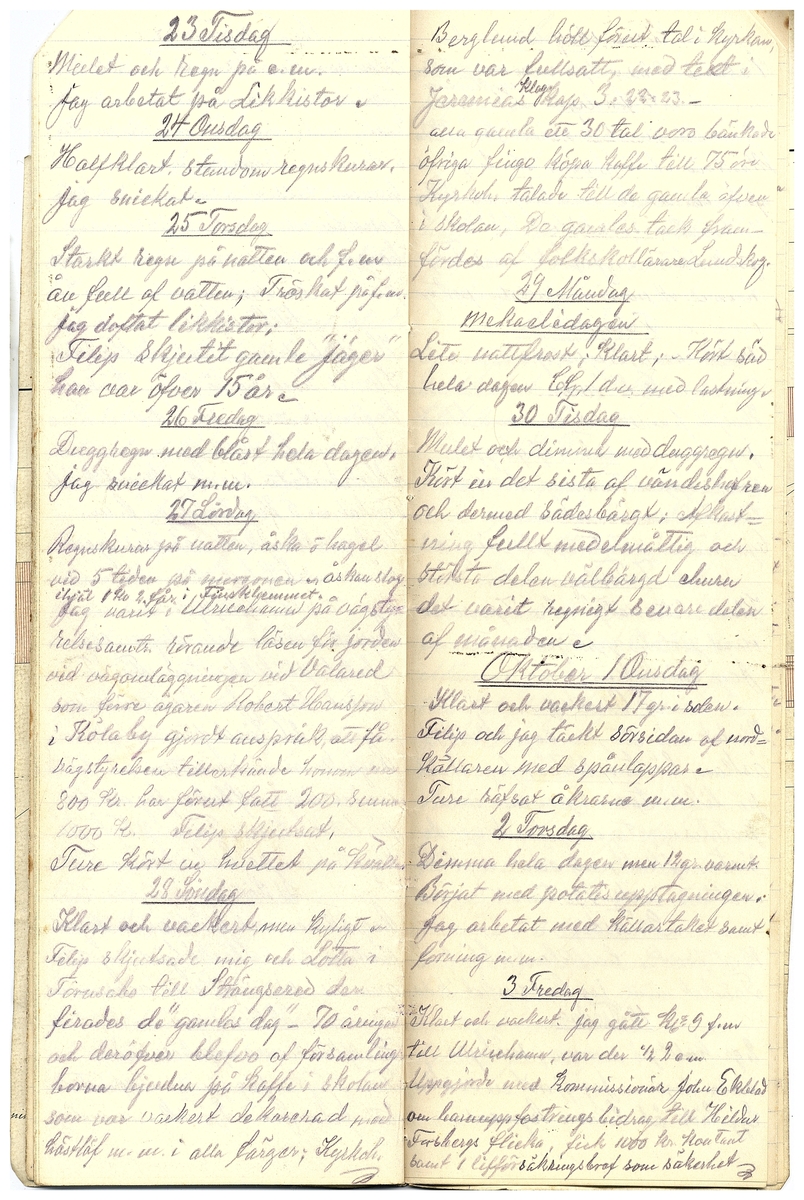 23 Tisdag
Mulet och regn på e.m.
Jag arbetat på Likkistor.
24 Onsdag
Halfklart. stundom regnskurar.
jag snickat.
25 Torsdag
Starkt regn på natten och f.m
ån full af vatten; Tröskat på f.m.
Jag doftat likkistor;
Filip skjutit gamle "jäger"
han var öfver 15 år.
26 Fredag
Duggregn med blåst hela dagen.
jag snickat m.m.
27 Lördag
Regnskurar på natten, åska o hagel
vid 5 tiden på morgonen, åskan slog
ihjäl 1 ko 2 får i Finskhemmet.
Jag varit i Ulricehamn på vägsty-
relsesamtr. rörande lösen för jorden
vid vägomläggningen vid Valared
som förre ägaren Robert Hansson
i Kölaby gjort anspråk att få.
vägstyrelsen tillerkände honom
800 Kr. har förut fått 200. summa
1000 Kr. Filip skjutsat.
Ture kört in hvettet på
28 Söndag
Klart och vackert, men kyligt
Filip skjutsade mig och Lotta i
till Strängsered der
firades de "gamlas dag" - 70 åringar
och deröfver blefvo af församlings
borna bjudna på kaffe i skolan
som var vackert dekorerad med
höstlöf m.m. i alla färger; Kyrkoh.
Berglund höll förut tal i kyrkan,
som var fullsatt, med text i
Jeremias Klag Kap. 3. 22-23.-
alla gamla ett 30 tal voro bänkade
öfriga fingo köpa kaffe till 75 öre
Kyrkoh. talade till de gamla äfven
i skolan, De gamlas tack fram-
fördes af folkskollärare Lundskog.
29 Måndag
Mekaelidagen
Lite nattfrost; Klart; - Kört säd
hela dagen 1 d.v. med lastning.
30 Tisdag
Mulet och dimma med duggregn.
Kört in det sista af vändeshafren
och dermed sädesbärgt; Afkast-
ning fullt medelmåttig och
största delen välbärgd ehuru
det varit regnigt senare delen
af månaden
Oktober 1 Onsdag
Klart och vackert 17 gr. i solen.
Filip och jag täckt sörsidan af nord-
källaren med spånlappar
Ture räfsat åkrarna m.m.
2 Torsdag
Dimma hela dagen men 12 gr. varmt.
Börjat med potatisupptagningen.
jag arbetat med källartaket samt
forning m.m.
3 Fredag
Klart och vackert. jag gått kl. 9 f.m
till Ulricehamn, var der 1/2 2 e.m.
Uppgjorde med Kommissionär John Ekblad
om barnuppfostringsbidrag till Hildur
Forsbergs flicka, fick 1000 kr. kontant
samt 1 lifförsäkringsbref som säkerhet